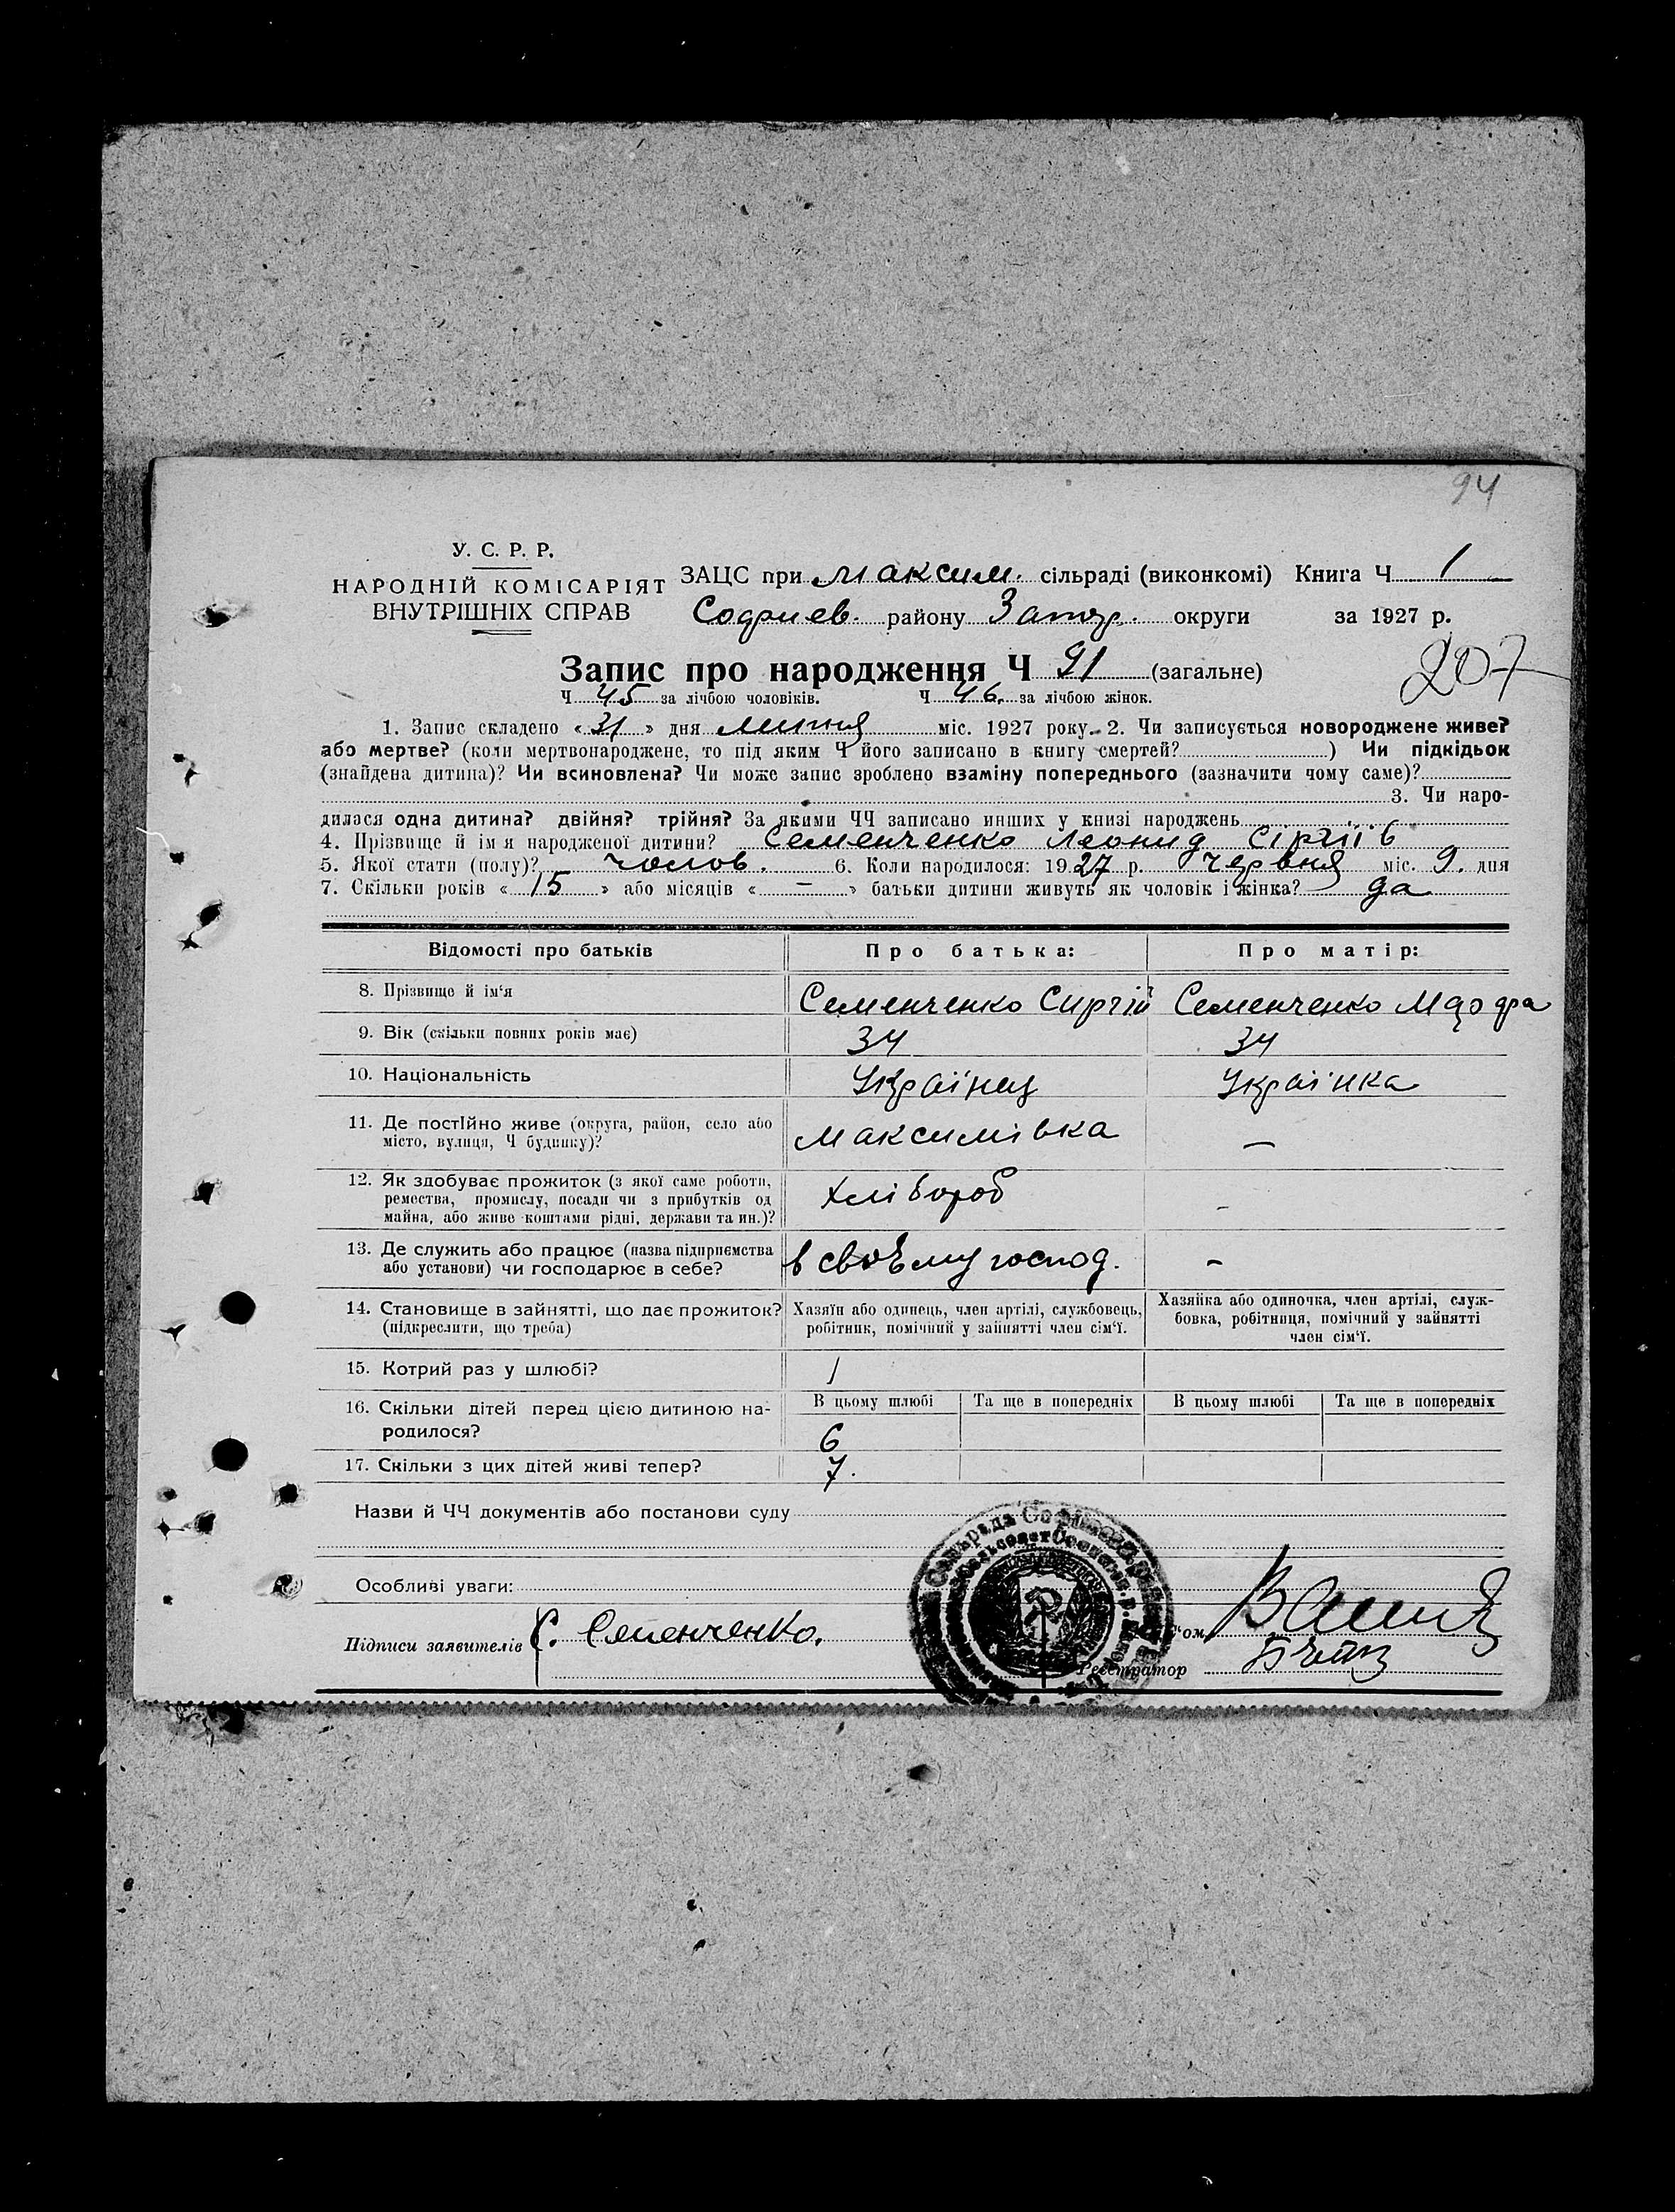 94
У. С. Р. Р.
НАРОДНІЙ КОМІСАРІЯТ
ВНУТРІШНІХ СПРАВ
ЗАЦС при Максим. сільраді (виконкомі) Книга Ч 1
Софиев. району Запор. округи за 1927 р.
Запис про народження Ч 91 (загальне)
207
Ч 45 за лічбою чоловіків. Ч 46. за лічбою жінок.
1. Запис складено «31» дня липня міс. 1927 року. 2. Чи записується новороджене живе?
або мертве? (коли мертвонароджене, то під яким Ч його записано в книгу смертей? ) Чи підкідьок
(знайдена дитина)? Чи всиновлена? Чи може запис зроблено взаміну попереднього (зазначити чому саме)?
3. Чи наро-
дилася одна дитина? двійня? трійня? За якими ЧЧ записано инших у книзі народжень
4. Прізвище й ім я народженої дитини? Семенченко Леонид Сіргіїв
5. Якої стати (полу)? чолов. 6. Коли народилося: 1927 р. червня міс. 9. дня
7. Скільки років «15» або місяців « – » батьки дитини живуть як чоловік і жінка? да
Відомості про батьків Про батька: Про матір:
8. Прізвище й ім'я Семенченко Сиргій Семенченко
9. Вік (скільки повних років має) 34 34
10. Національність Українец Українка
11. Де постійно живе (округа, район, село або
місто, вулиця, Ч будинку)? Максимівка –
12. Як здобуває прожиток (з якої саме роботи,
ремества, промислу, посади чи з прибутків од
майна, або живе коштами рідні, держави та ин.)? Хлібороб -
13. Де служить або працює (назва підприємства
або установи) чи господарює в себе? в своъму господ. -
14. Становище в зайнятті, що дає прожиток?
(підкреслити, що треба)
Хазяїн або одинець, член артілі, службовець,
робітник, помічний у зайнятті член сім'ї.
Хазяйка або одиночка, член артілі, служ-
бовка, робітниця, помічний у зайнятті
член сім'ї.
15. Котрий раз у шлюбі? 1
16. Скільки дітей перед цією дитиною на-
родилося?
В цьому шлюбі Та ще в попередніх В цьому шлюбі Та ще в попередніх
6
17. Скільки з цих дітей живі тепер? 7.
Назви й ЧЧ документів або постанови суду
Особливі уваги:
Підписи заявителів С. Семенченко.
Реєстратор